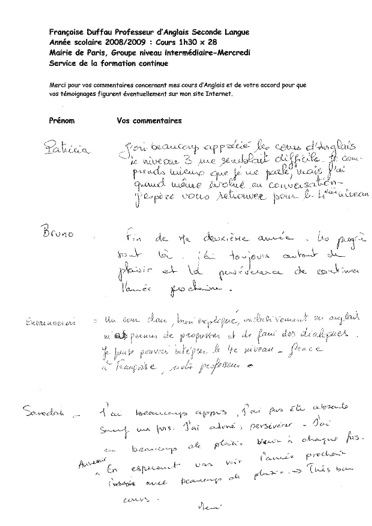 Françoise Duffau Professeur d'Anglais Seconde Langue
Année scolaire 2008/2009 : Cours 1h30 x 28
Mairie de Paris, Groupe niveau intermédiaire-Mercredi
Service de la formation continue
Merci pour vos commentaires concernant mes cours d'Anglais et de votre accord pour que
vos témoignages figurent éventuellement sur mon site Internet.
Prénom Vos commentaires
Patricia J'ai beaucoup apprécié les cours d'Anglais
le niveau 3 me semblait difficile. Je com-
prends mieux que je ne parle, mais j'ai
quand même évolué en conversation
j'espère vous retrouver pour le 4ème niveau
Bruno Fin de ma deuxième année. Les progrès
sont là. J'ai toujours autant de
plaisir et la persévérance de continuer
l'année prochaine.
Un cours clair, bien expliqué, en anglais
m'a permis de progresser et de faire des dialogues.
Je pense pouvoir intégrer le 4e niveau - grâce
à Françoise, notre professeur.
J'ai beaucoup appris, j'ai pas été absente
sauf une fois. J'ai adoré, persévérer - J'ai
eu beaucoup de plaisir venir à chaque fois.
En espérant vous voir l'année prochain
avec beaucoup de plaisir → Très bon
cours.
Merci